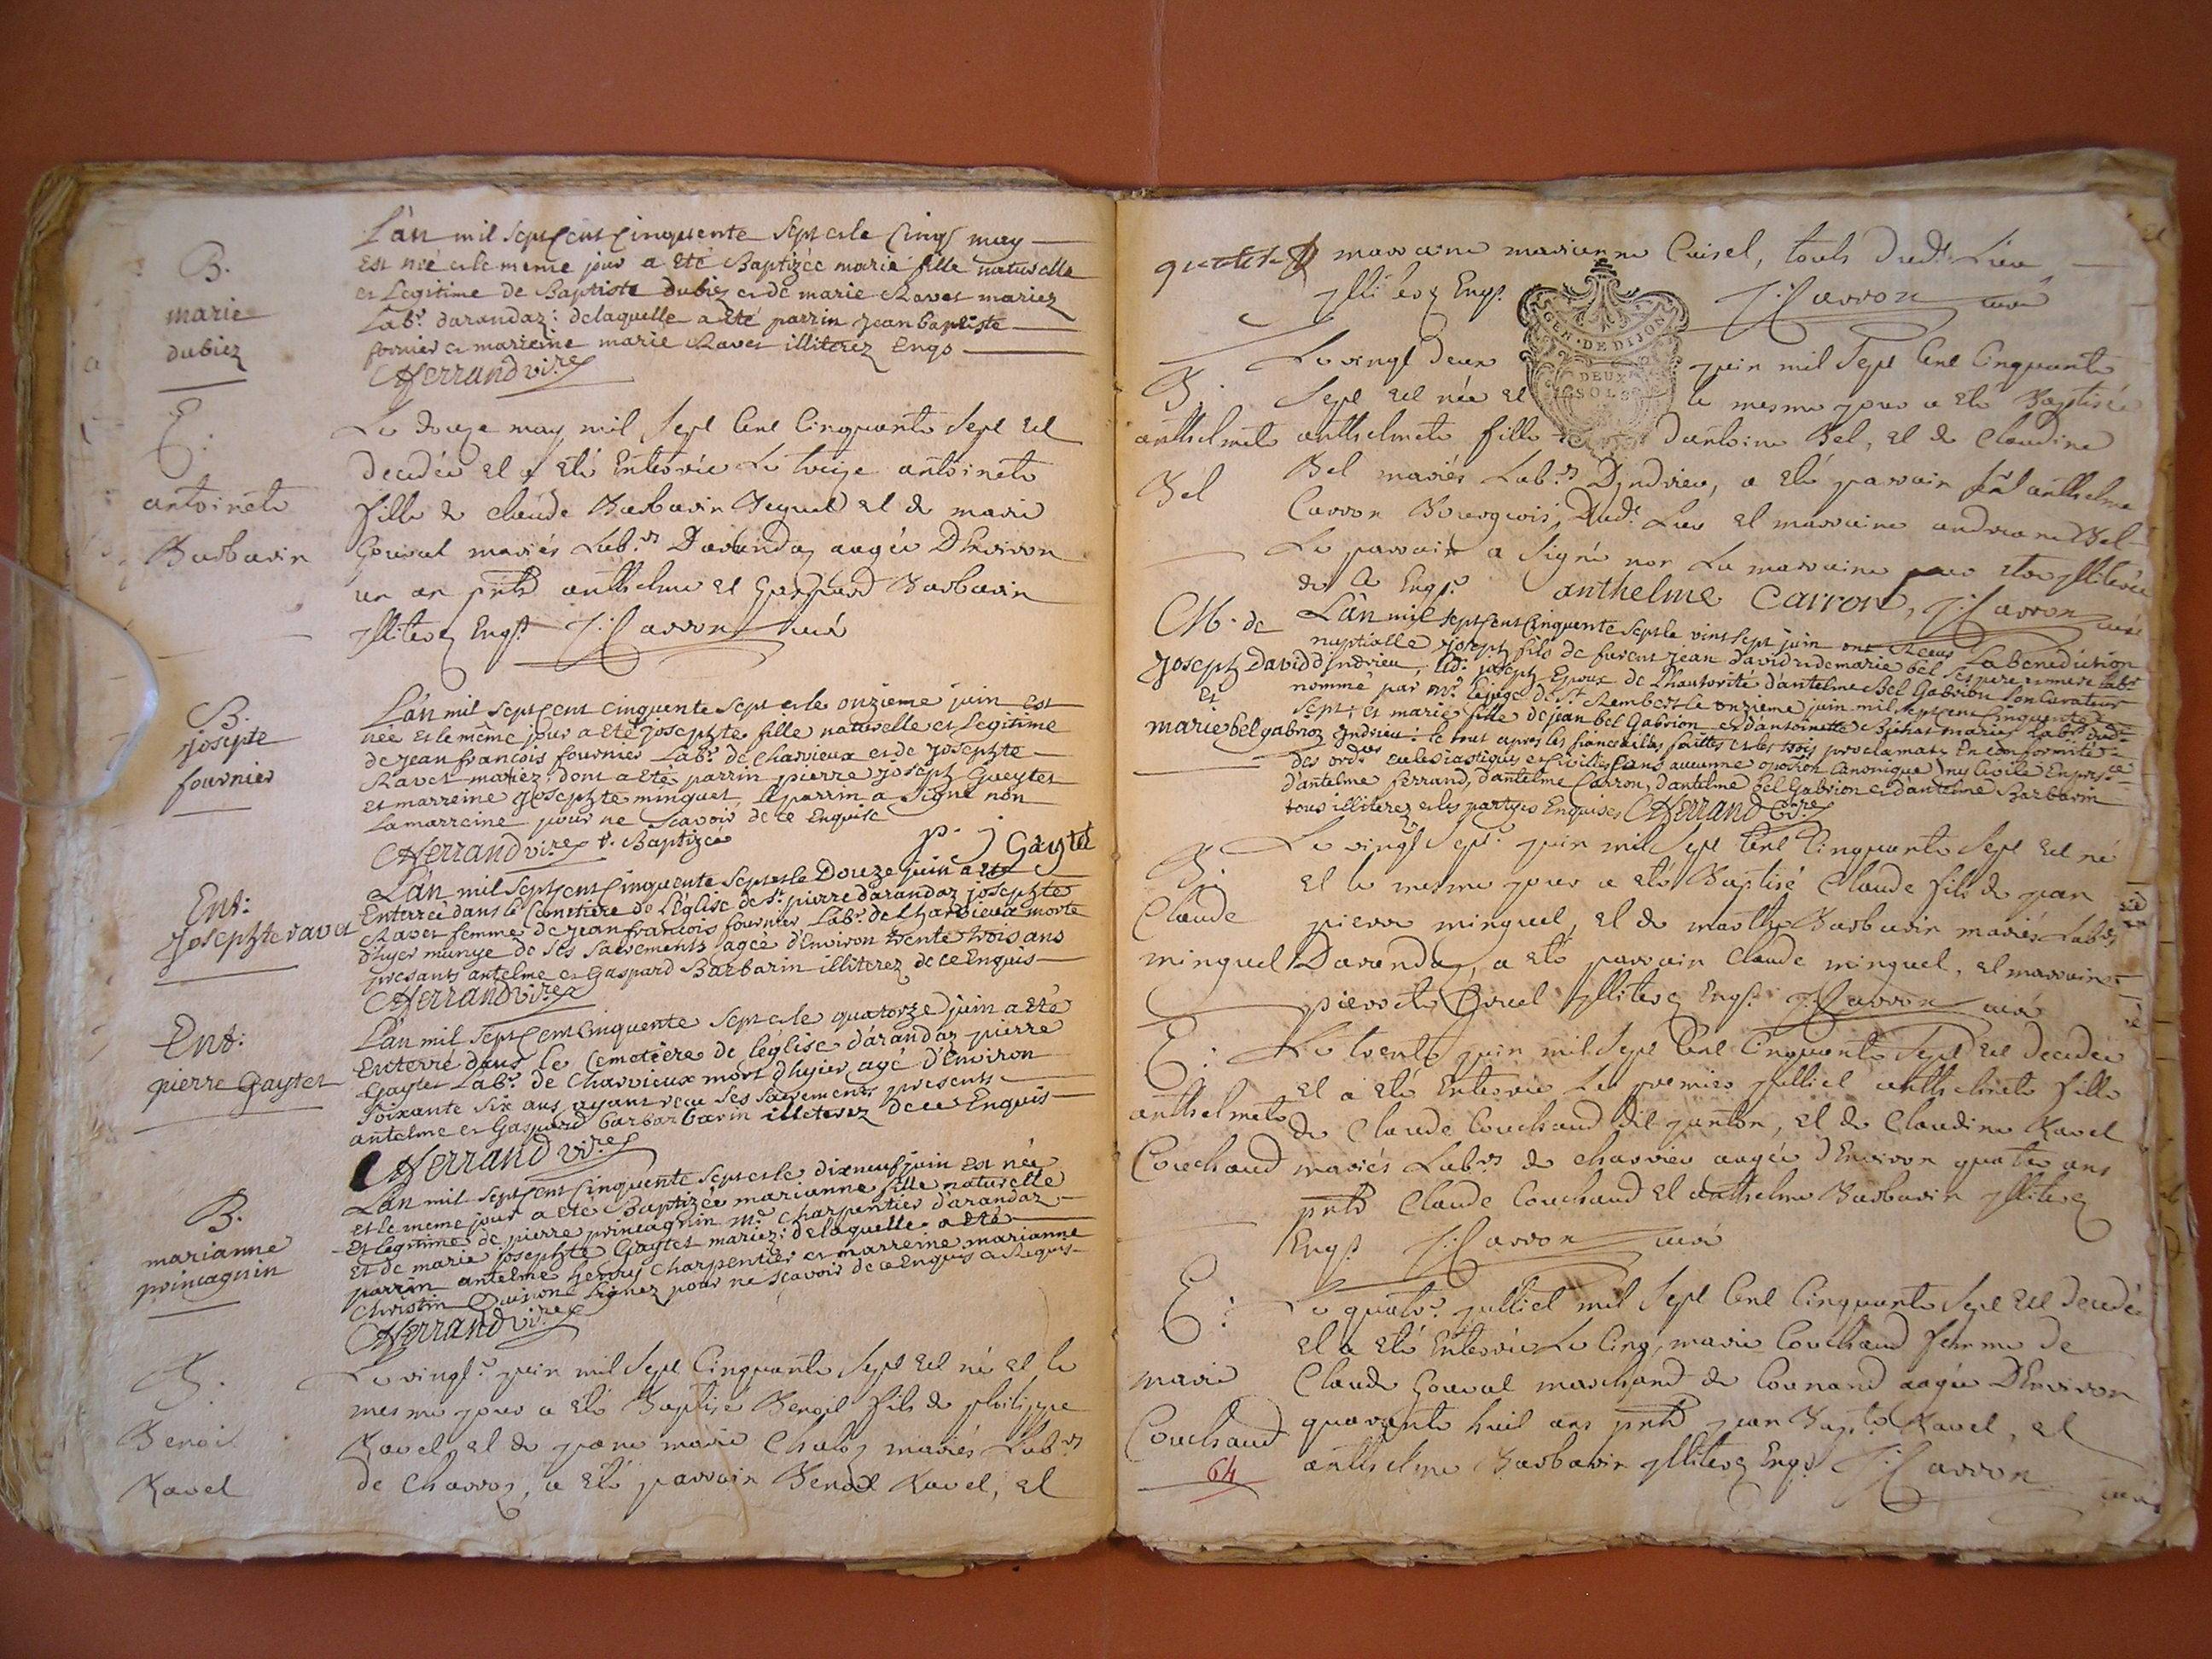 B.
marie
dubiez
L'an mil sept cent cinquente sept et le cinq may
est neé et le meme jour a eté Baptizée marie fille naturelle
et Legitime de Baptiste dubiez et de marie Ravet mariez
Labrs darandaz : delaquelle a eté parrin jean baptiste
fornier et marreine marie Ravet illiterez Enqs
Ferrand vire
E.
antoinete
Barbarin
Le douze may mil sept Cent Cinquante sept est
decedée et a eté Enterrée Le treize antoinete
fille de claude Barbarin Jequet et de marie
Goural mariés Labrs Darandaz aagée D'Environ
un an pnts anthelme et Gaspard Barbarin
jlliterez Enqs J: Carron curé
B.
josepte
fournier
L'an mil sept cent cinquente sept et le onzieme juin est
neé et le même jour a eté josephte fille naturelle et legitime
de jean francois fournier Labr. de Charvieux et de josephte
Ravet mariez, dont a eté parrin pierre joseph Gueytet
et marreine josephte minguet le parrin a signé non
la marreine pour ne scavoir de ce Enquise
Ferrand vire t. Baptizée
p. j Gaytet
Ent:
josephte ravet
L'an mil sept cent cinquente sept et le Douze juin a eté
Enterreé dans le Cimetiere de l'Eglise de St. pierre darandaz josephte
Ravet femme de jean francois fournier Labr. de Charvieux morte
d'hyer munye de ses sacrements ageé d'Environ trente trois ans
presants antelme et Gaspard Barbarin illiterez de ce Enquis
Ferrand vire
Ent:
pierre Gaytet
L'an mil sept cent cinquente sept et le quatorze juin a eté
Enterré dans le Cemetière de leglise d'arandaz pierre
Gaytet Labr. de Charvieux mort d'hyier, agé d'Environ
soixante six ans ayant recu ses sacrements presents
antelme et Gaspard barbarbarin illeterez de ce Enquis
Ferrand vire
B.
marianne
princaguin
L'an mil sept cent cinquente sept et le dixneuf juin est née
et le meme jour a eté Baptizée marianne fille naturelle
et legitime de pierre princaguin Me. Charpentier d'arandaz
et de marie josephte Gaytet mariez ; delaquelle a eté
parrin antelme henry charpentier et marreine marianne
Christin qui n'ont signez pour ne scavoir de ce Enquis et Requis
Ferrand vire
B.
Benoit
Ravel
Le vingt. juin mil sept Cinquante sept est né et le
mesme jour a eté Baptisé Benoit fils de philippe
Ravel, et de jeane marie Chaloz mariés Labrs
de Charvoz, a eté parrain Benoit Ravel, et
marraine marianne Cuisel, touts dudt. Lieu
jlliterez Enqs. J: Carron curé
GEN. DE DIJON
DEUX
SOLS
B.
anthelmete
Bel
Le vingt deux juin mil sept Cent Cinquante
sept est née et le mesme jour a eté Baptisée
anthelmete fille d'antoine Bel, et de Claudine
Bel mariés Labrs Dyndrieu, a eté parrain sr anthelme
Carron Bourgeois Dudt. Lieu et marraine andreane Bel
Le parrain a signé non La marraine pour etre jlliterée
de ce Enqs. anthelme Carron, J: Carron curé
M. de
joseph David
Et
marie bel gabrion
L'an mil sept cent cinquente sept le vint sept juin ont Receus La benediction
nuptialle joseph fils de furent jean david et de marie bel ses pere et mere Labr
d'Indrieu, led: joseph Epoux de l'hautorité d'antelme Bel Gabrion son Curateur
nommé par Mr. le juge de St. Rembert le onzieme juin mil sept cent cinquente
sept, et marie fille de jean bel Gabrion et d'antoinette mariez Labrs dudt
Indrieu : le tout apres les fiancailles faittes et les trois proclamats En conformité
des ord. eclesiastiques et Civilles sans aucunne oposition Canonique ny Civile En prsce
d'antelme ferrand, d'antelme Carron, d'antelme bel Gabrion et d'antelme Barbarin
tous illiterez et les partyes Enquises Ferrand vire
B.
Claude
minguel
Le vingt sept. juin mil sept Cent Cinquante sept est né
et le mesme jour a eté Baptisé Claude fils de jean
pierre minguel, et de marthe Barbarin mariés Labrs
Darandaz, a eté parrain Claude minguel, et marraine
pierrete jlliterez Enqs. J: Carron curé
E:
anthelmete
Couchaud
Le trente juin mil sept Cent Cinquante sept est decedée
et a eté Enterrée Le premier julliet anthelmete fille
de Claude Couchaud dit janton, et de Claudine Ravel
mariés Labrs de Charvieu aagée d'Environ quatre ans
pnts Claude Couchaud et anthelme Barbarin jlliterez
Enqs J: Carron curé
E:
marie
Couchaud
64
Le quatre julliet mil sept Cent Cinquante sept est decedée
et a eté Enterrée Le Cinq, marie Couchaud femme de
Claude Goural marchand de Conand aagée D'Environ
quarante huit ans pnts jean Bapte Ravel, et
anthelme Barbarin jlliterez Enqs J: Carron
curé